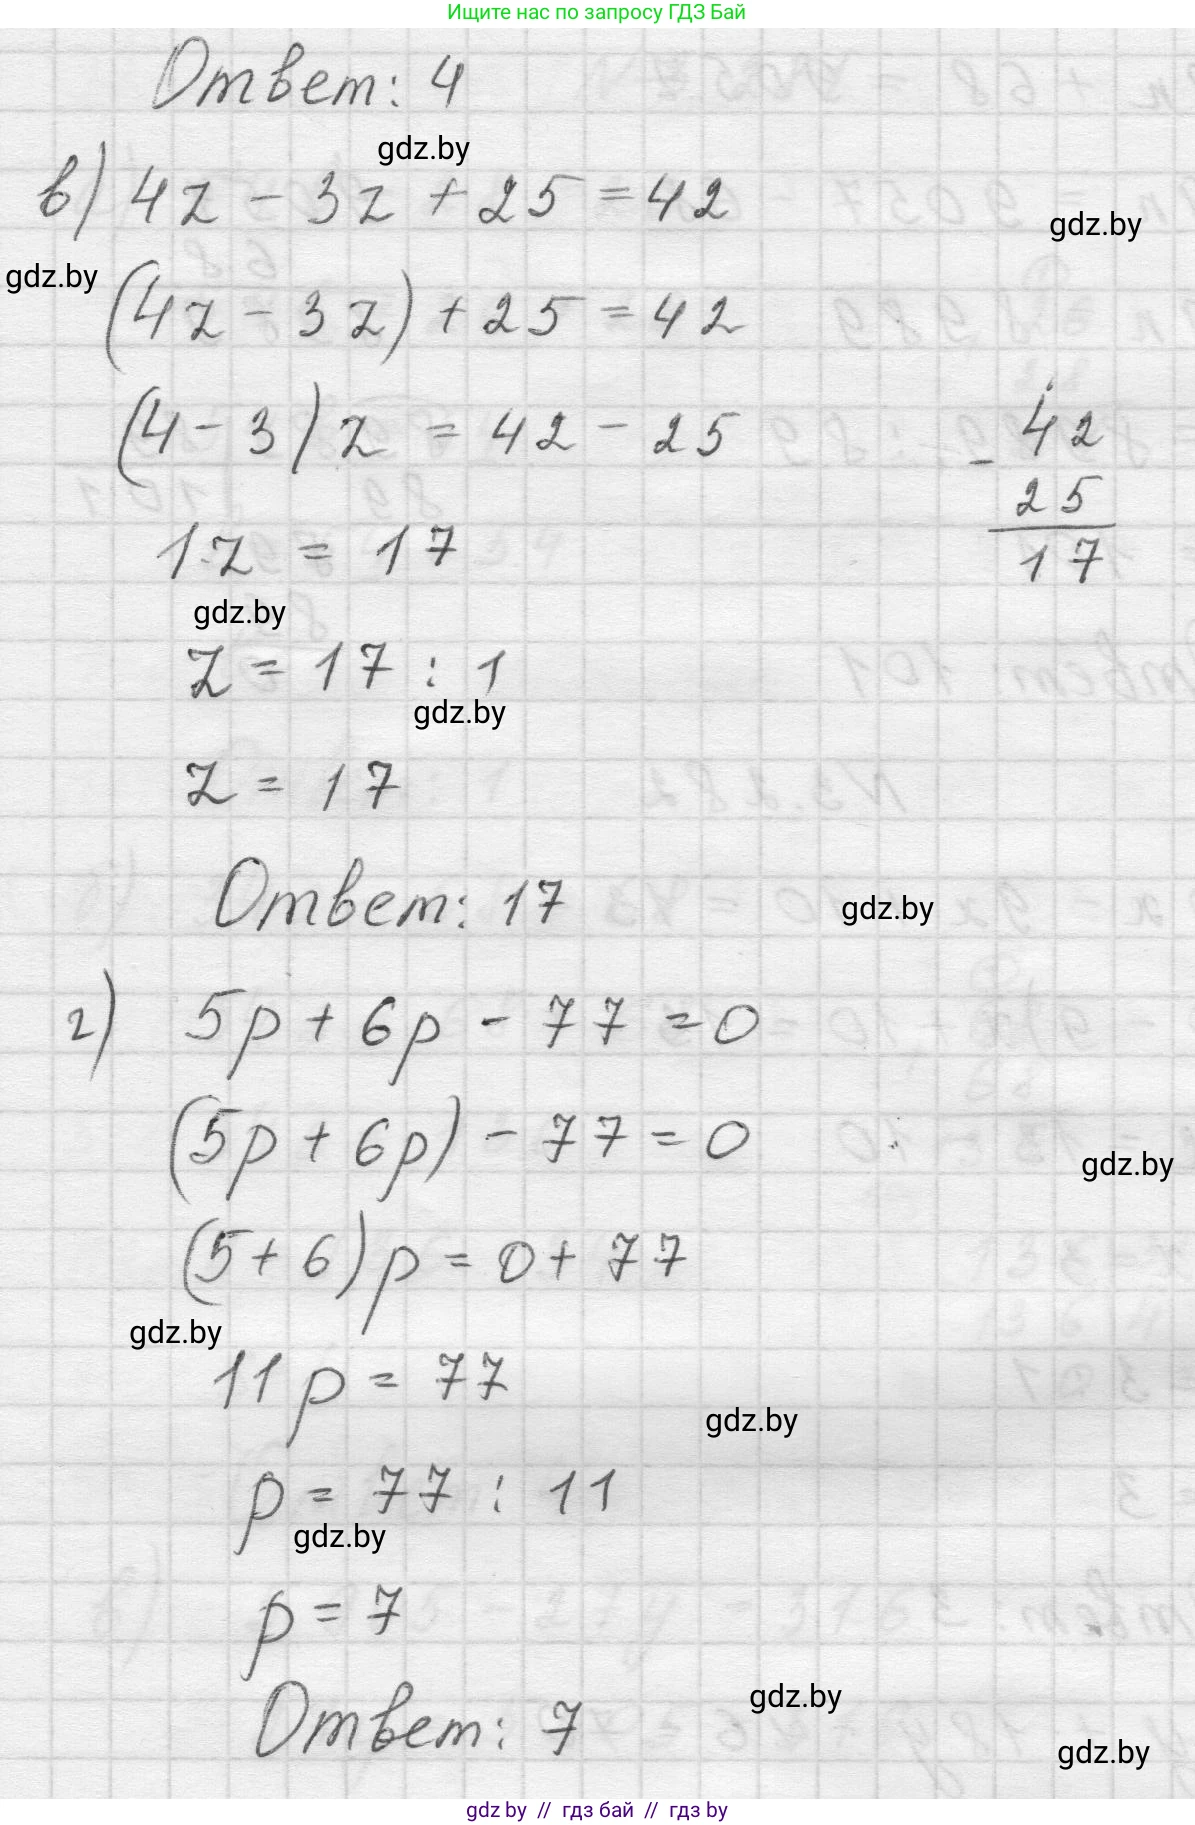 Ищите нас по запросу ГДЗ Бай
Ответ: 4
gdz.by
в) 4z - 3z + 25 = 42
gdz.by
gdz.by
(4z - 3z) + 25 = 42
(4 - 3)z = 42 - 25
- 42
25
17
1z = 17
gdz.by
z = 17 : 1
gdz.by
z = 17
Ответ: 17
gdz.by
г) 5p + 6p - 77 = 0
(5p + 6p) - 77 = 0
gdz.by
(5 + 6)p = 0 + 77
gdz.by
11p = 77
gdz.by
p = 77 : 11
gdz.by
p = 7
gdz.by
Ответ: 7
gdz.by
gdz by // гдз бай // гдз by